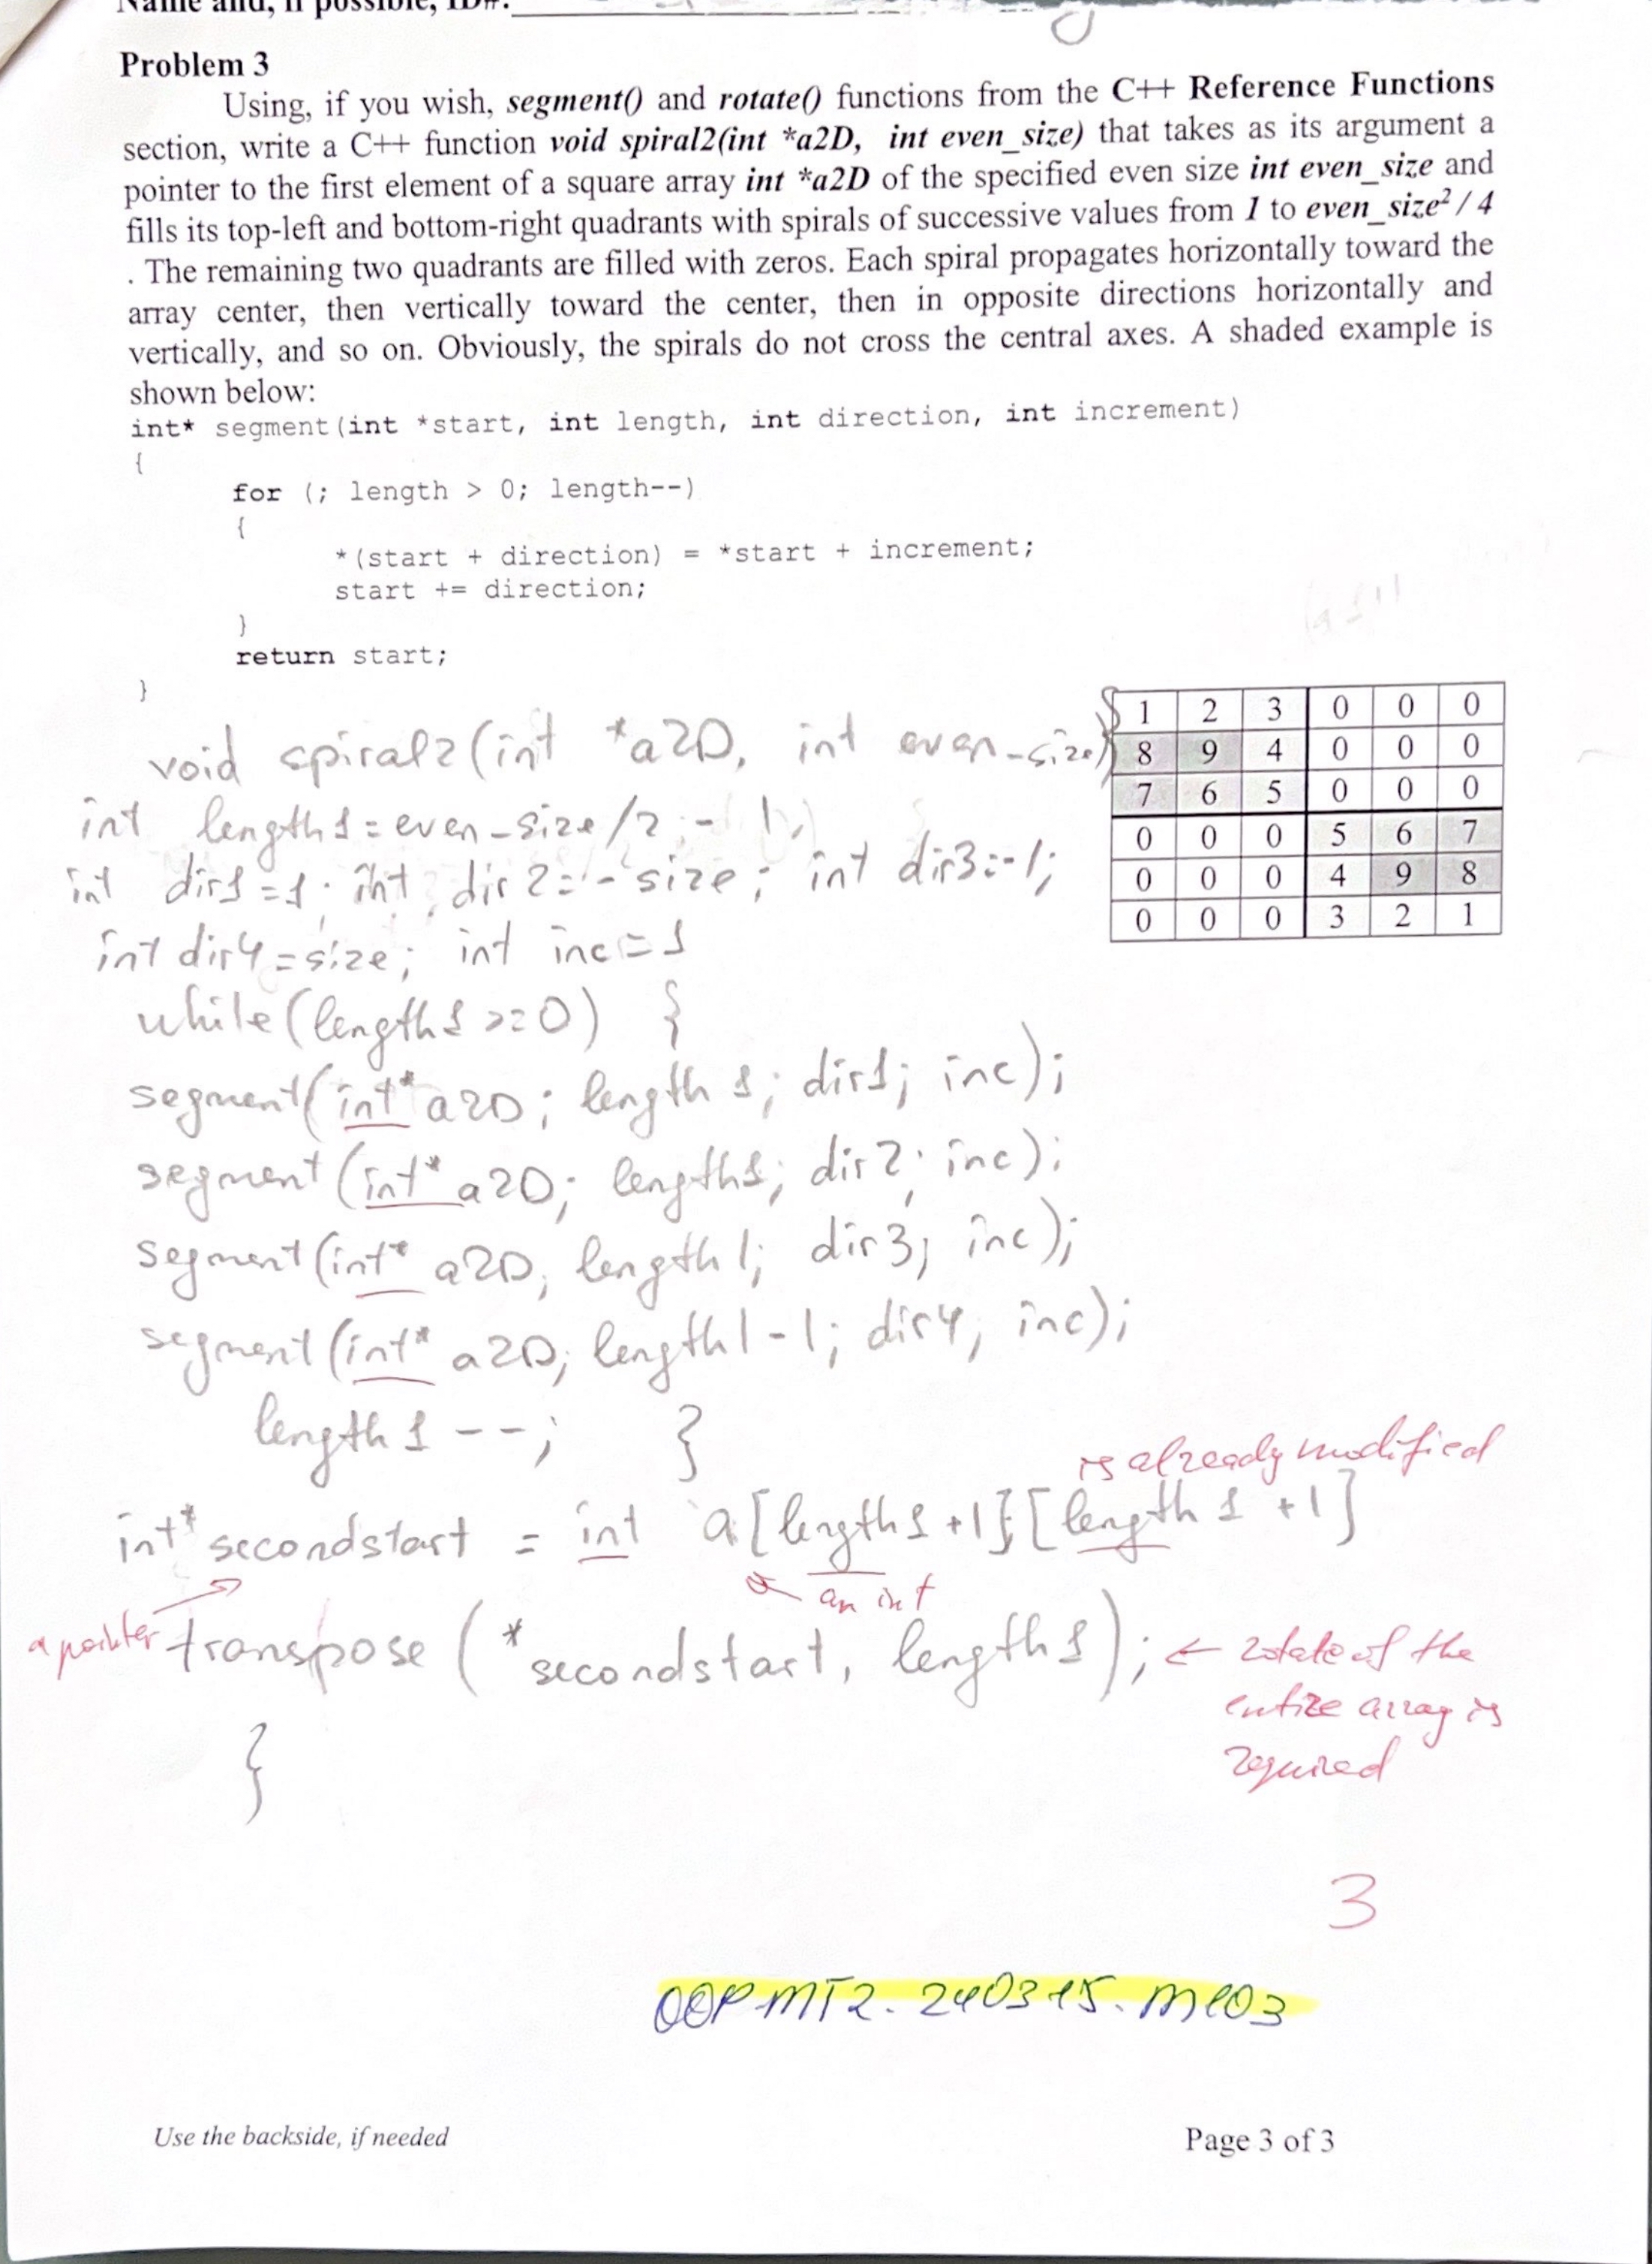 Name and, if possible, ID#:
Problem 3
Using, if you wish, segment() and rotate() functions from the C++ Reference Functions
section, write a C++ function void spiral2(int *a2D, int even_size) that takes as its argument a
pointer to the first element of a square array int *a2D of the specified even size int even_size and
fills its top-left and bottom-right quadrants with spirals of successive values from 1 to even_size² / 4
. The remaining two quadrants are filled with zeros. Each spiral propagates horizontally toward the
array center, then vertically toward the center, then in opposite directions horizontally and
vertically, and so on. Obviously, the spirals do not cross the central axes. A shaded example is
shown below:
int* segment(int *start, int length, int direction, int increment)
{
for (; length > 0; length--)
{
*(start + direction) = *start + increment;
start += direction;
}
return start;
}
1 2 3 0 0 0
8 9 4 0 0 0
7 6 5 0 0 0
0 0 0 5 6 7
0 0 0 4 9 8
0 0 0 3 2 1
void spiral2(int *a2D, int even_size){
int length1 = even_size/2 - 1;
int dir1 = 1; int dir2 = -size; int dir3 = -1;
int dir4 = size; int inc = 1
while(length1 >= 0) {
segment(int* a2D; length1; dir1; inc);
segment(int* a2D; length1; dir2; inc);
segment(int* a2D; length1; dir3; inc);
segment(int* a2D; length1-1; dir4; inc);
length1 --; }
is already modified
int* secondstart = int a[length1+1][length1+1]
an int
a pointer
transpose(*secondstart, length1); ← rotate of the
entire array is
required
}
3
OOP-MT2. 240315. M103
Use the backside, if needed
Page 3 of 3